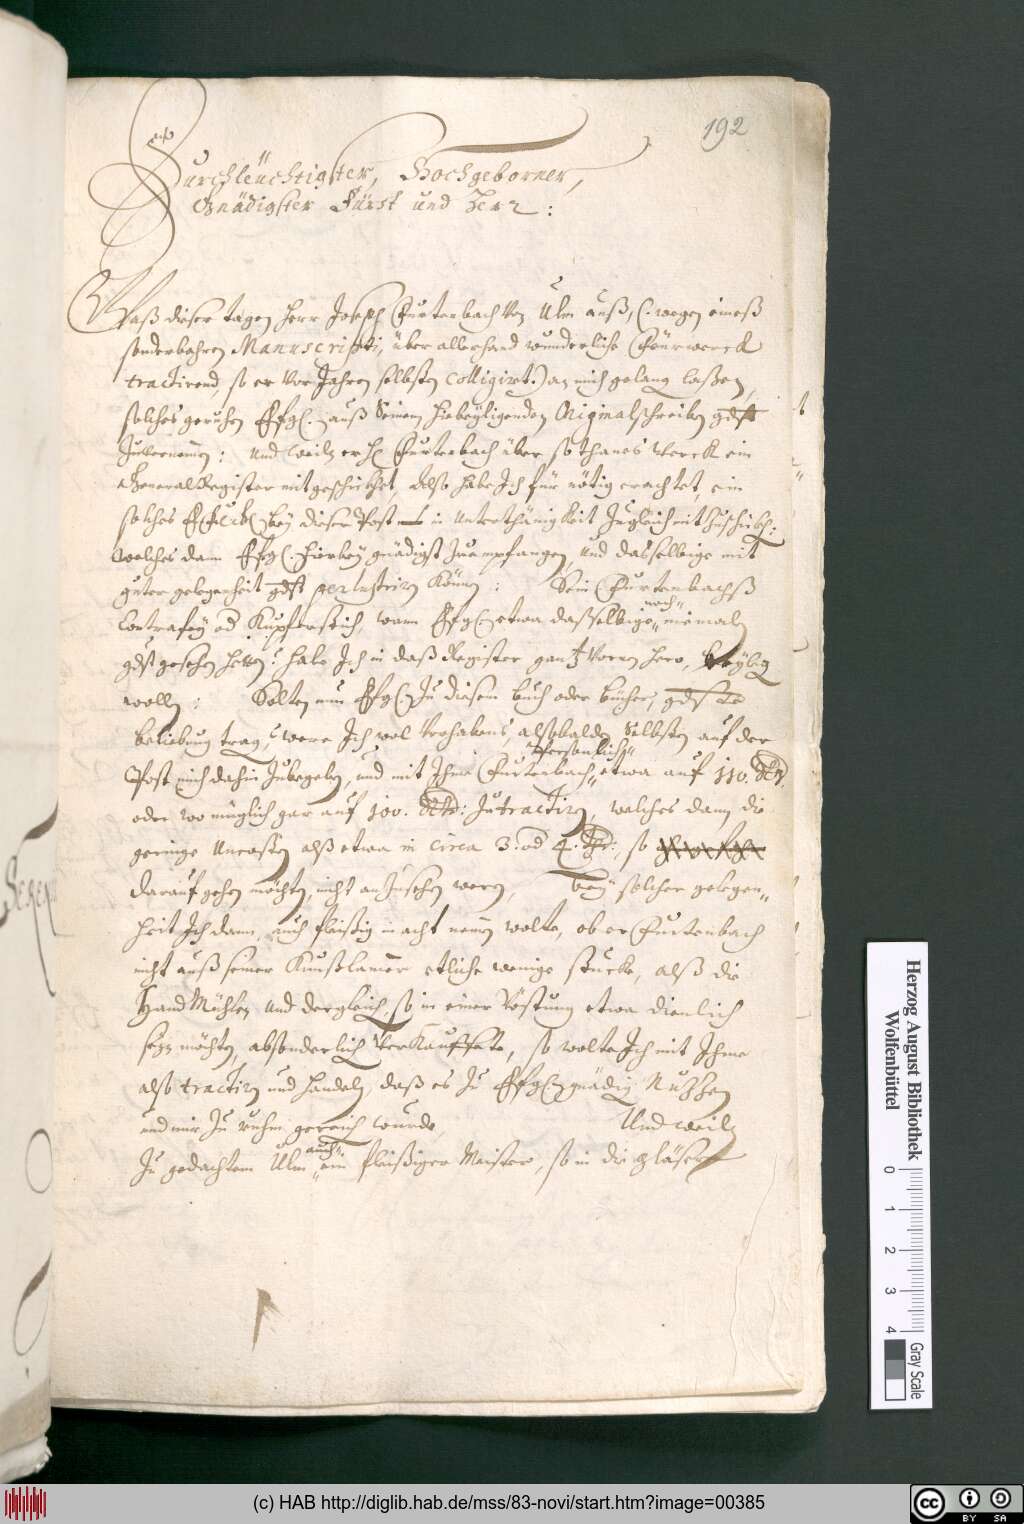 192
Durchleüchtigster, Hochgeborner,
Gnädigster Fürst und Herr :
Waß dieser tagen Herr Joseph Furtenbach von Ulm auß, (wegen eineß
sonderbahren Manuscripti, über allerhand wunderliche Feürwerck
tractirend, so er vor Jahren selbsten colligirt.) an mich gelang laßen,
solches geruhen EfG. auß seinem hiebeyligenden Originalschreiben gdst
zuvernemen : und weiln er H. Furtenbach über sothanes Werck ein
General Register mitgeschicket, Alß habe Ich für nötig erachtet, ein
solches bey dieser Post in Unterthänigkeit zugleich mit zuschicken :
welches dann EfG. hierbey gnädigst zuempfangen, und dasselbige mit
guter gelegenheit gdst perlustriren können : Sein Furtenbachß
Contrafey od Kupferstich, wann EfG. etwa dasselbige noch niemaln
gdst gesehen hetten, habe Ich in daß Register gantz vornen hero, beylegen
wollen : Solten nun EfG. zu diesem buch oder bücher, gdste
beliebung tragen, were Ich wol vorhabens, alsobalden selbsten auf der
Post mich dahin zubegeben, und mit Ihme Furtenbach persönlich etwa auf 110.
oder wo müglich gar auf 100. zutractiren, welches dann die
geringe Uncosten alß etwa in circa 3. od 4. so
darauf gehen möchten, nicht anzusehen weren, bey solcher gelegen-
heit Ich dann, auch fleißig in acht nemen wolte, ob er Furtenbach
nicht auß seiner Kunstkamer etliche wenige stucke, alß die
Hand Mühlen und dergleich, so in einer Vöstung etwa dienlich
sein möchten, absonderlich verkauffete, so wolte Ich mit Ihme
also tractiren und handeln, daß es zu EfG. gnädig Nutzen
und mir zu ruhm gereich wurde, Und weiln
zu gedachtem Ulm auch ein fleißiger Meister, so in die gläser
Herzog August Bibliothek
Wolfenbüttel
0 1 2 3 4
Gray Scale
(c) HAB http://diglib.hab.de/mss/83-novi/start.htm?image=00385
cc BY SA